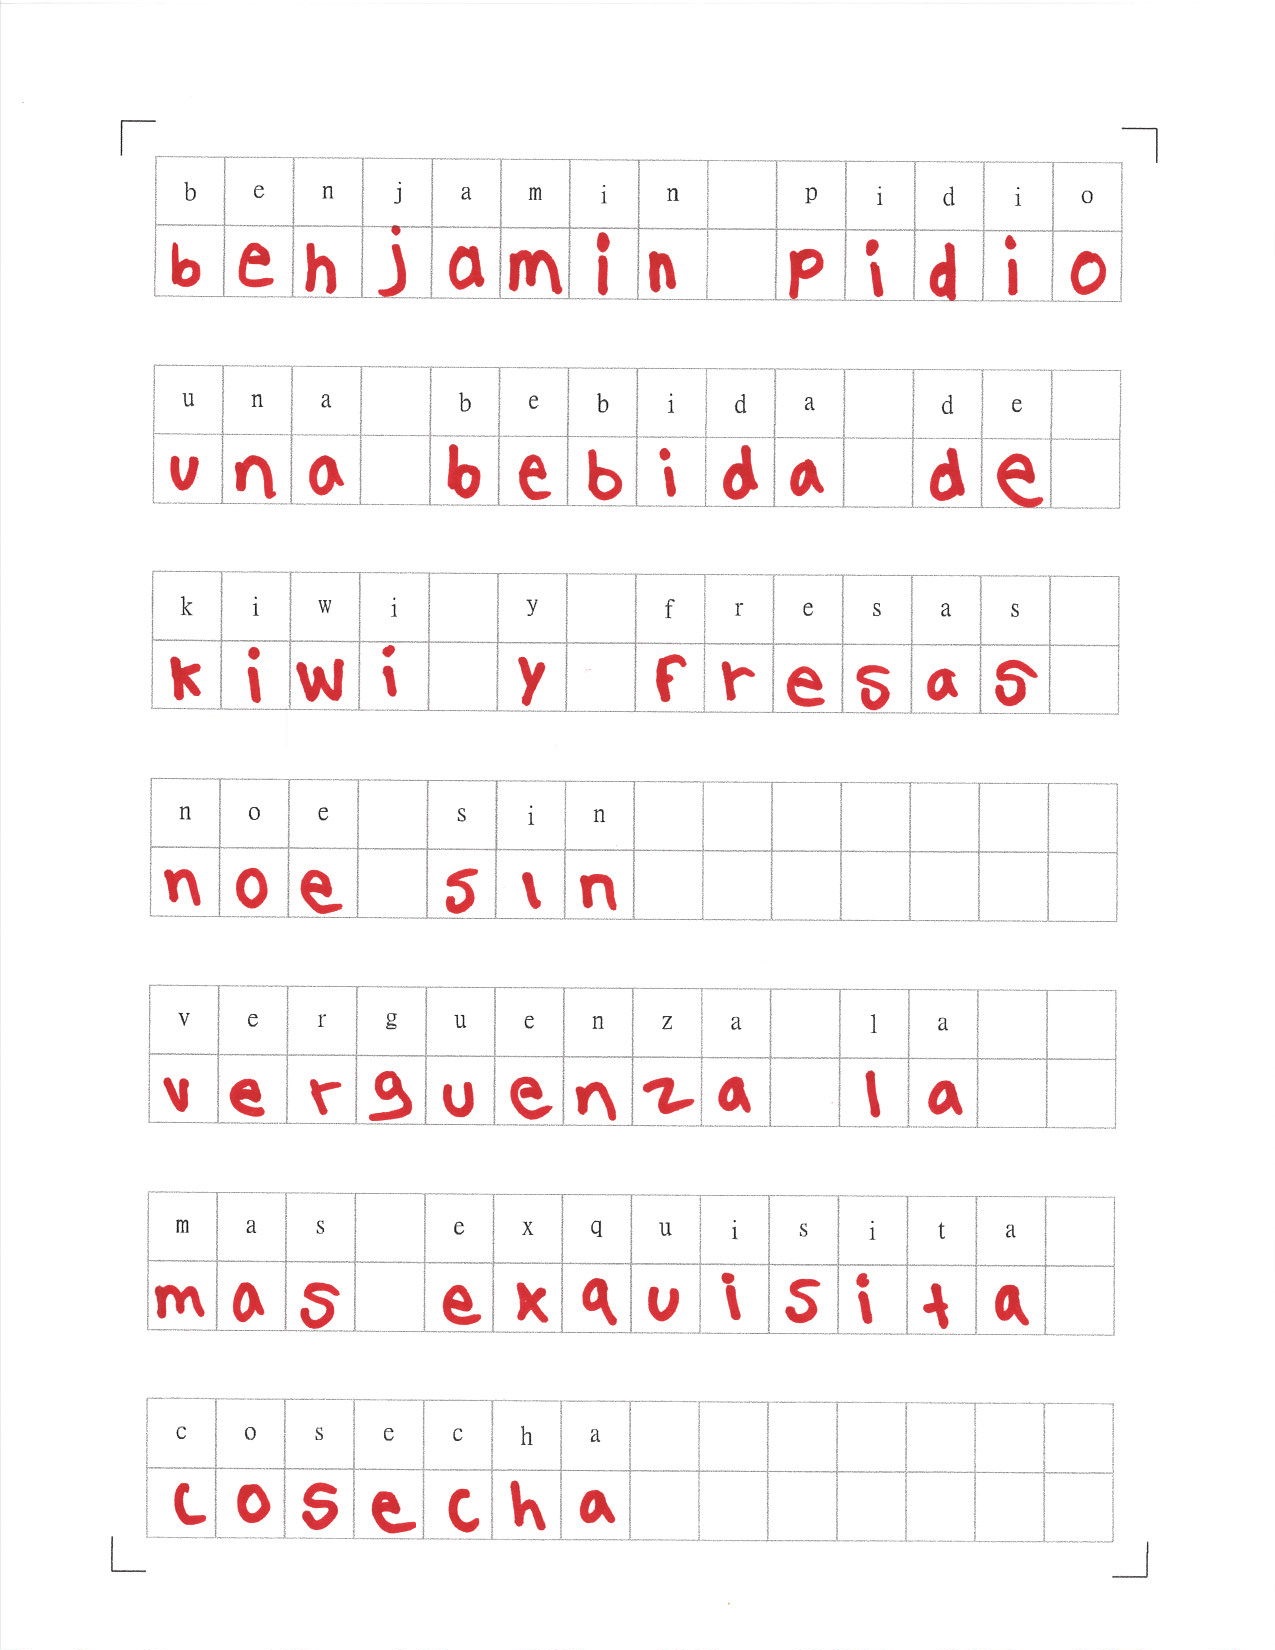 b e n j a m i n p i d i o
benjamin pidio
u n a b e b i d a d e
una bebida de
k i w i y f r e s a s
kiwi y fresas
n o e s i n
noe sin
v e r g u e n z a l a
verguenza la
m a s e x q u i s i t a
mas exquisita
c o s e c h a
cosecha